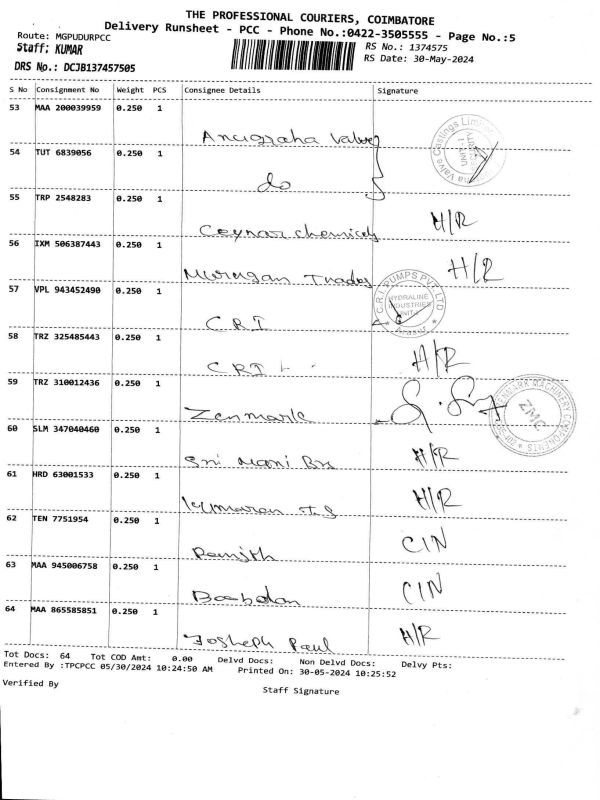 THE PROFESSIONAL COURIERS, COIMBATORE
Delivery Runsheet - PCC - Phone No.:0422-3505555 - Page No.:5
Route: MGPUDURPCC RS No.: 1374575
Staff: KUMAR RS Date: 30-May-2024
DRS No.: DCJB137457505
S No Consignment No Weight PCS Consignee Details Signature
53 MAA 200039959 0.250 1
Anugraha Valve
54 TUT 6839056 0.250 1
do
55 TRP 2548283 0.250 1
chemicals H/R
56 IXM 506387443 0.250 1
Murugan Trades H/R
57 VPL 943452490 0.250 1
C.R.I. PUMPS PVT LTD
HYDRALINE
INDUSTRIES
UNIT-I
C.R.I
58 TRZ 325485443 0.250 1
C.R.I H/R
59 TRZ 310012436 0.250 1
Zenmark
ZMC
60 SLM 347040460 0.250 1
Sri Mani H/R
61 HRD 63001533 0.250 1
Kumaran H/R
62 TEN 7751954 0.250 1
Ranjith C/N
63 MAA 945006758 0.250 1
C/N
64 MAA 865585851 0.250 1
Josheph Paul H/R
Tot Docs: 64 Tot COD Amt: 0.00 Delvd Docs: Non Delvd Docs: Delvy Pts:
Entered By :TPCPCC 05/30/2024 10:24:50 AM Printed On: 30-05-2024 10:25:52
Verified By
Staff Signature